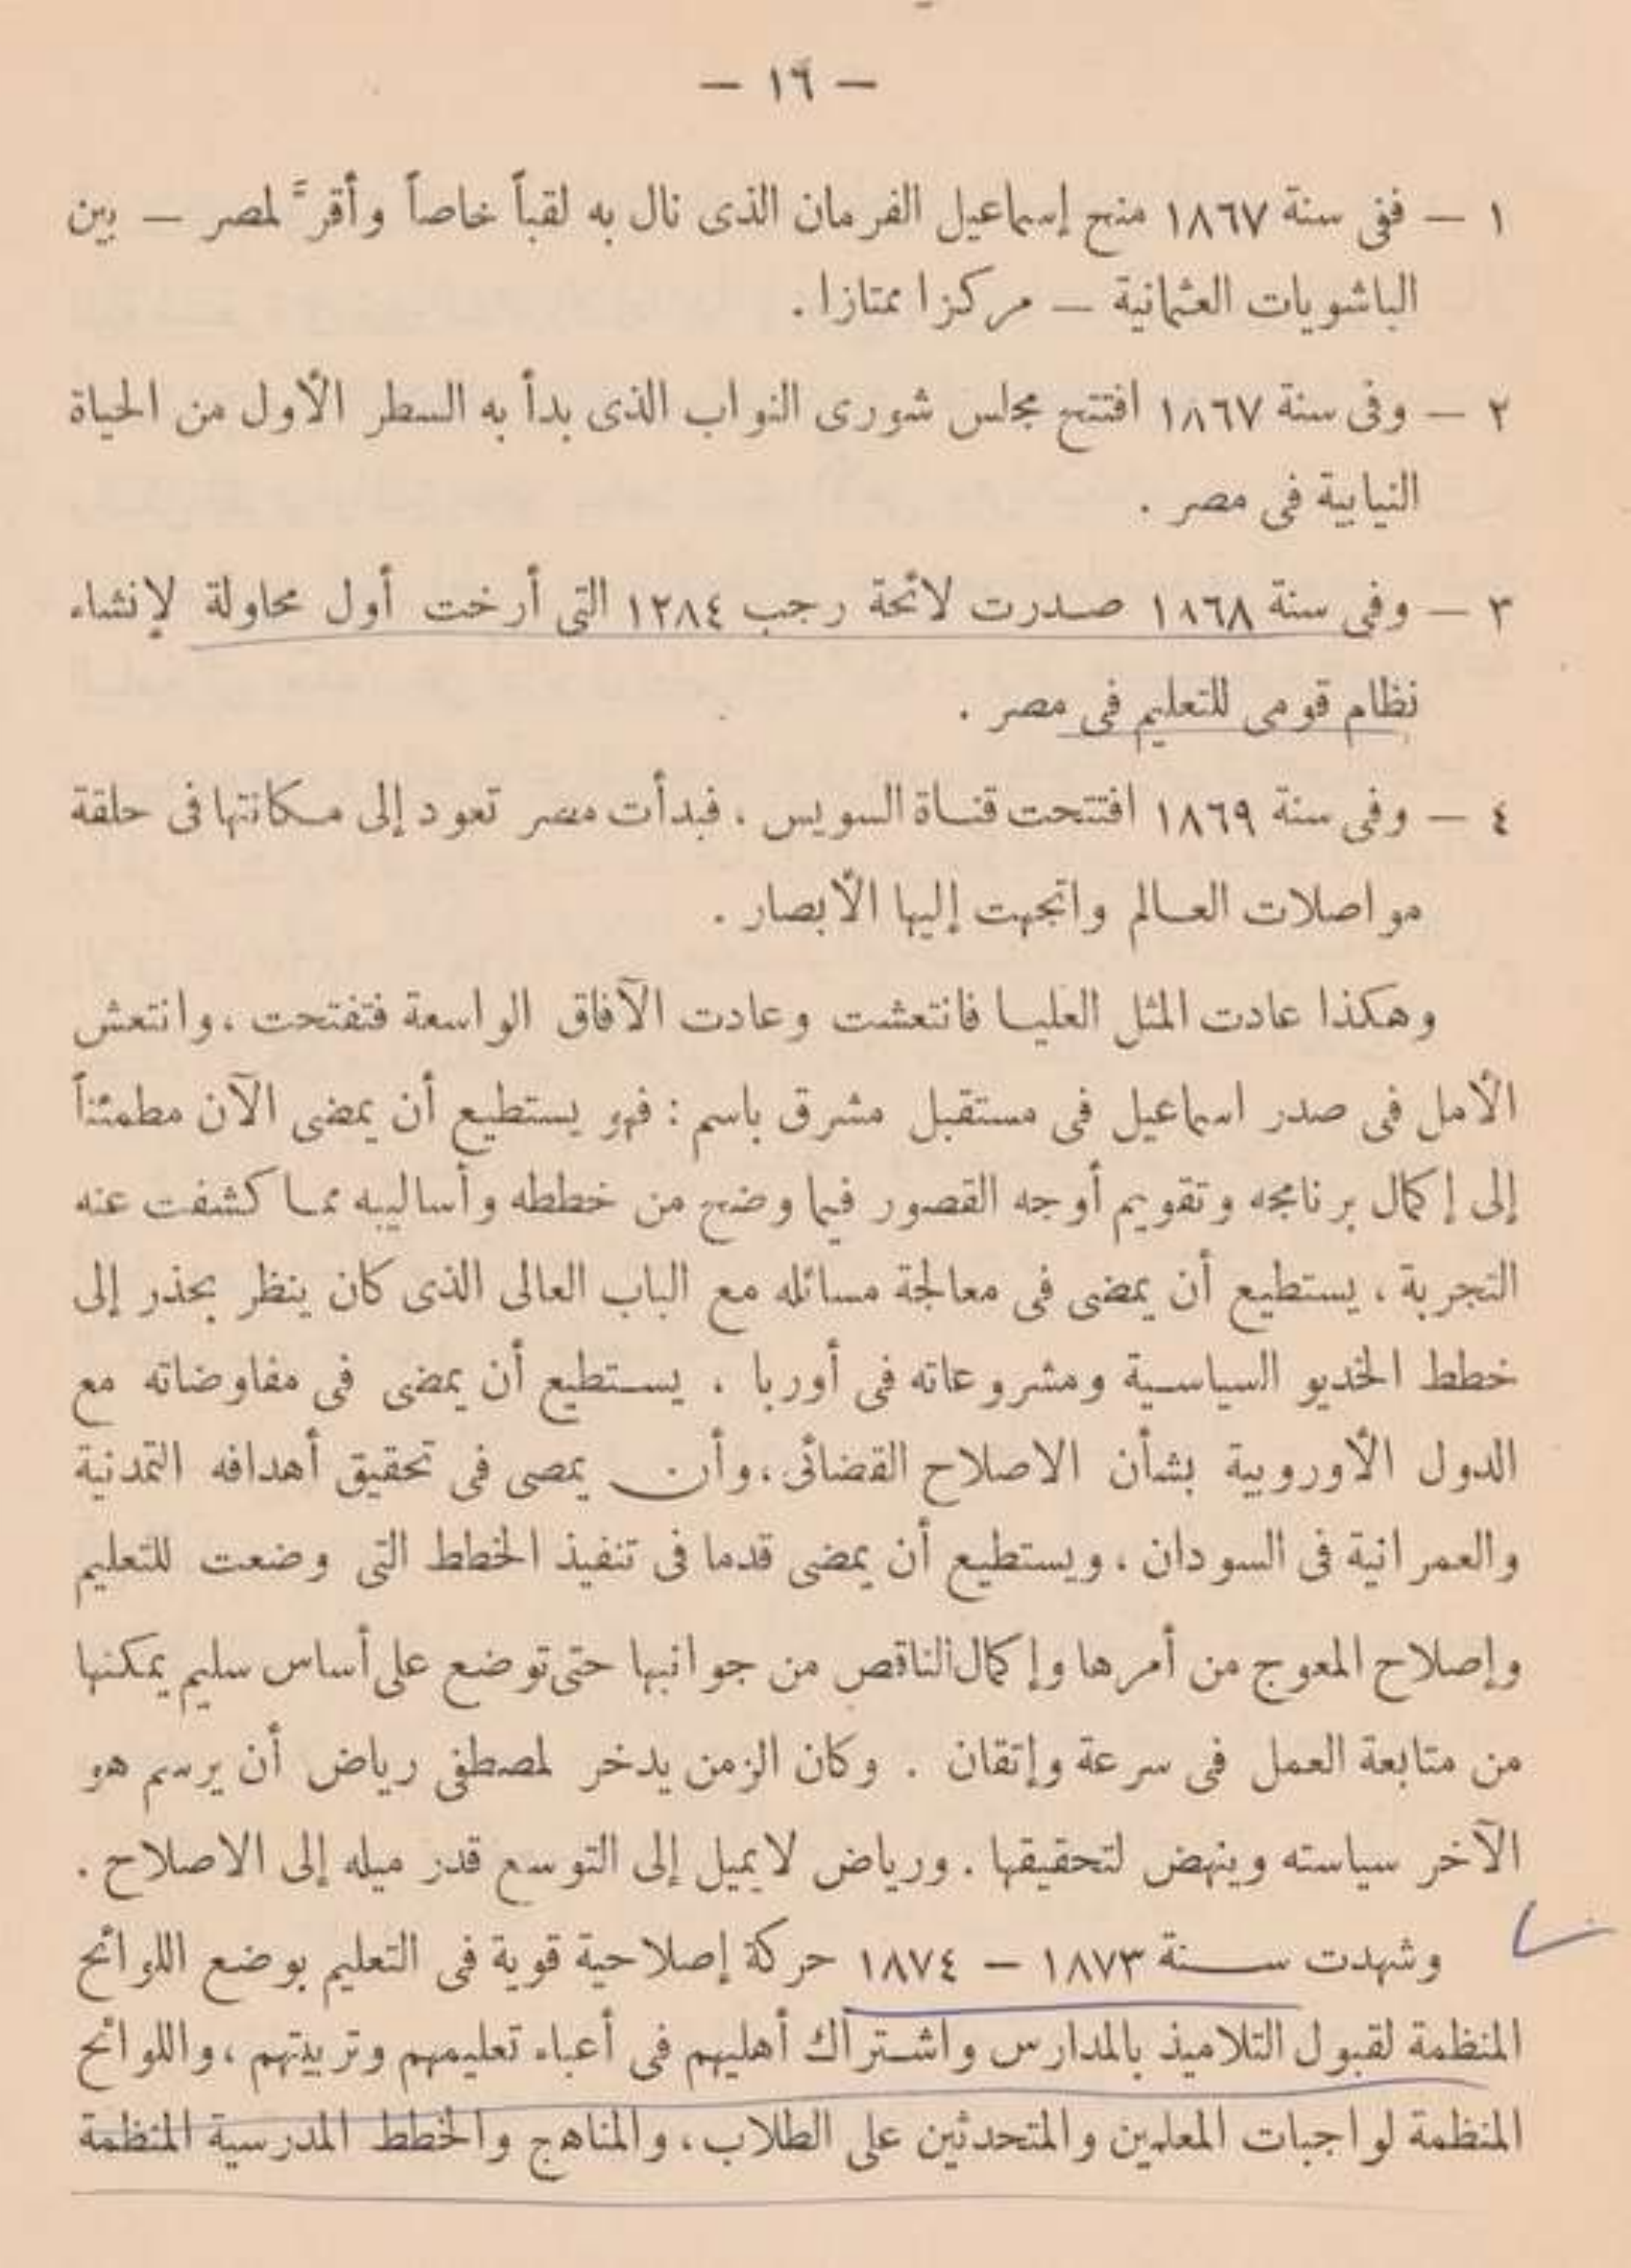 — ١٦ —
١ — ففى سنة ١٨٦٧ منح إسماعيل الفرمان الذى نال به لقباً خاصاً وأقرَّ لمصر — بين
الباشويات العثمانية — مركزا ممتازا .
٢ — وفى سنة ١٨٦٧ افتتح مجلس شورى النواب الذى بدأ به السطر الأول من الحياة
النيابية فى مصر .
٣ — وفى سنة ١٨٦٨ صدرت لائحة رجب ١٢٨٤ التى أرخت أول محاولة لإنشاء
نظام قومى للتعليم فى مصر .
٤ — وفى سنة ١٨٦٩ افتتحت قناة السويس ، فبدأت مصر تعود إلى مكانتها فى حلقة
مواصلات العالم واتجهت إليها الأبصار .
وهكذا عادت المثل العليا فانتعشت وعادت الآفاق الواسعة فتفتحت ، وانتعش
الأمل فى صدر اسماعيل فى مستقبل مشرق باسم : فهو يستطيع أن يمضى الآن مطمئناً
إلى إكمال برنامجه وتقويم أوجه القصور فيما وضح من خططه وأساليبه مما كشفت عنه
التجربة ، يستطيع أن يمضى فى معالجة مسائله مع الباب العالى الذى كان ينظر بحذر إلى
خطط الخديو السياسية ومشروعاته فى أوربا ، يستطيع أن يمضى فى مفاوضاته مع
الدول الأوروبية بشأن الاصلاح القضائى ، وأن يمصى فى تحقيق أهدافه التمدنية
والعمرانية فى السودان ، ويستطيع أن يمضى قدما فى تنفيذ الخطط التى وضعت للتعليم
وإصلاح المعوج من أمرها وإكمال الناقص من جوانبها حتى توضع على أساس سليم يمكنها
من متابعة العمل فى سرعة وإتقان . وكان الزمن يدخر لمصطفى رياض أن يرسم هو
الآخر سياسته وينهض لتحقيقها . ورياض لا يميل إلى التوسع قدر ميله إلى الاصلاح .
وشهدت سنة ١٨٧٣ — ١٨٧٤ حركة إصلاحية قوية فى التعليم بوضع اللوائح
المنظمة لقبول التلاميذ بالمدارس واشتراك أهليهم فى أعباء تعليمهم وتربيتهم ، واللوائح
المنظمة لواجبات المعلمين والمتحدثين على الطلاب ، والمناهج والخطط المدرسية المنظمة